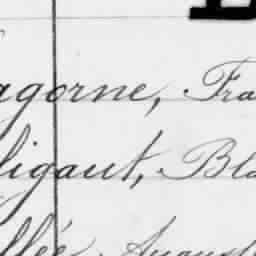 agorne, Fra
ligaut, Bla
llée, August